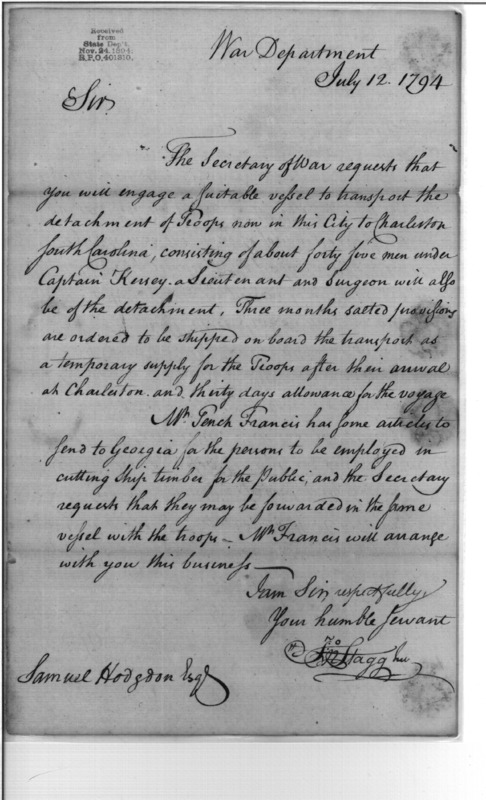 Received
from
State Dep't.
Nov. 24. 1904.
R.P.O. 401210.
War Department
July 12. 1794
Sir
The Secretary of War requests that
you will engage a suitable vessel to transport the
detachment of Troops now in this City to Charleston
South Carolina, consisting of about forty five men under
Captain Kersey. a Lieutenant and Surgeon will also
be of the detachment. Three months salted provisions
are ordered to be shipped on board the transport as
a temporary supply for the Troops after their arrival
at Charleston. and thirty days allowance for the voyage
Mr. Tench Francis has some articles to
send to Georgia for the persons to be employed in
cutting ship timber for the Public, and the Secretary
requests that they may be forwarded in the same
vessel with the troops — Mr. Francis will arrange
with you this business —
I am Sir respectfully
Your humble Servant
Jno Stagg
Samuel Hodgdon Esqr